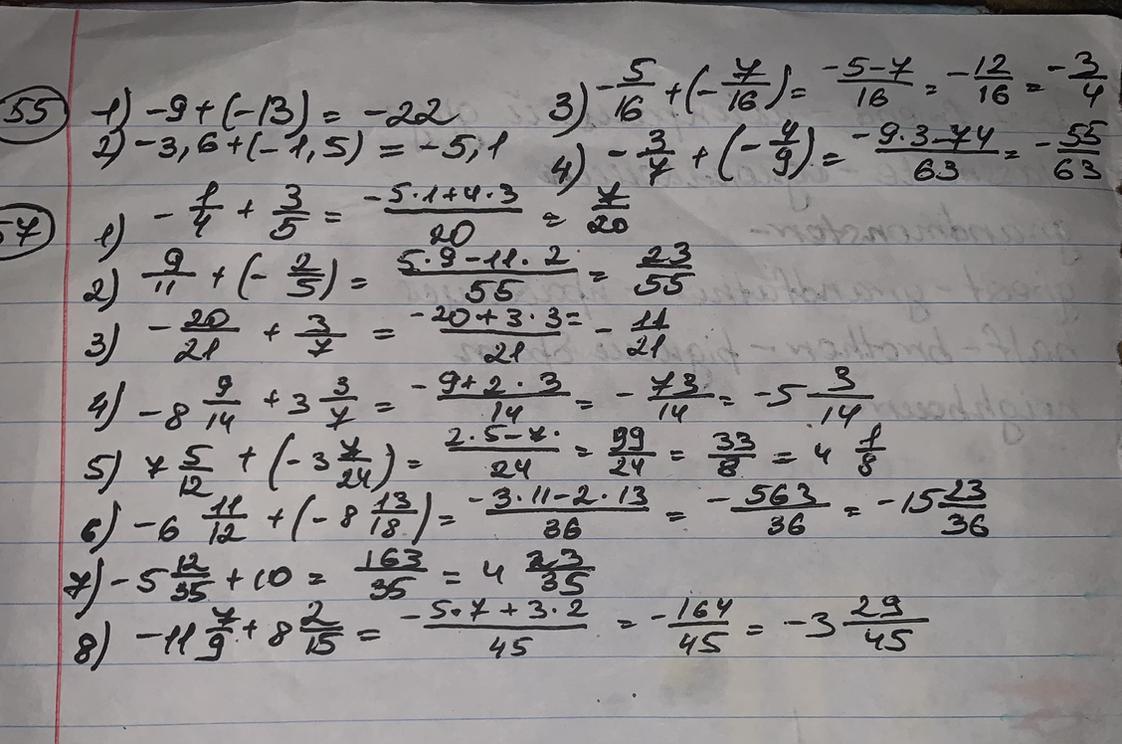 55 1) -9 + (-13) = -22
2) -3,6 + (-1,5) = -5,1
3) -5/16 + (-7/16) = (-5-7)/16 = -12/16 = -3/4
4) -3/7 + (-4/9) = (-9·3-74)/63 = -55/63
57 1) -1/4 + 3/5 = (-5·1+4·3)/20 = 7/20
2) 9/11 + (-2/5) = (5·9-11·2)/55 = 23/55
3) -20/21 + 3/7 = (-20+3·3)/21 = -11/21
4) -8 9/14 + 3 3/7 = (-9+2·3)/14 = -73/14 = -5 3/14
5) 7 5/12 + (-3 7/24) = (2·5-7·)/24 = 99/24 = 33/8 = 4 1/8
6) -6 11/12 + (-8 13/18) = (-3·11-2·13)/36 = -563/36 = -15 23/36
7) -5 12/35 + 10 = 163/35 = 4 23/35
8) -11 7/9 + 8 2/15 = (-5·7+3·2)/45 = -164/45 = -3 29/45